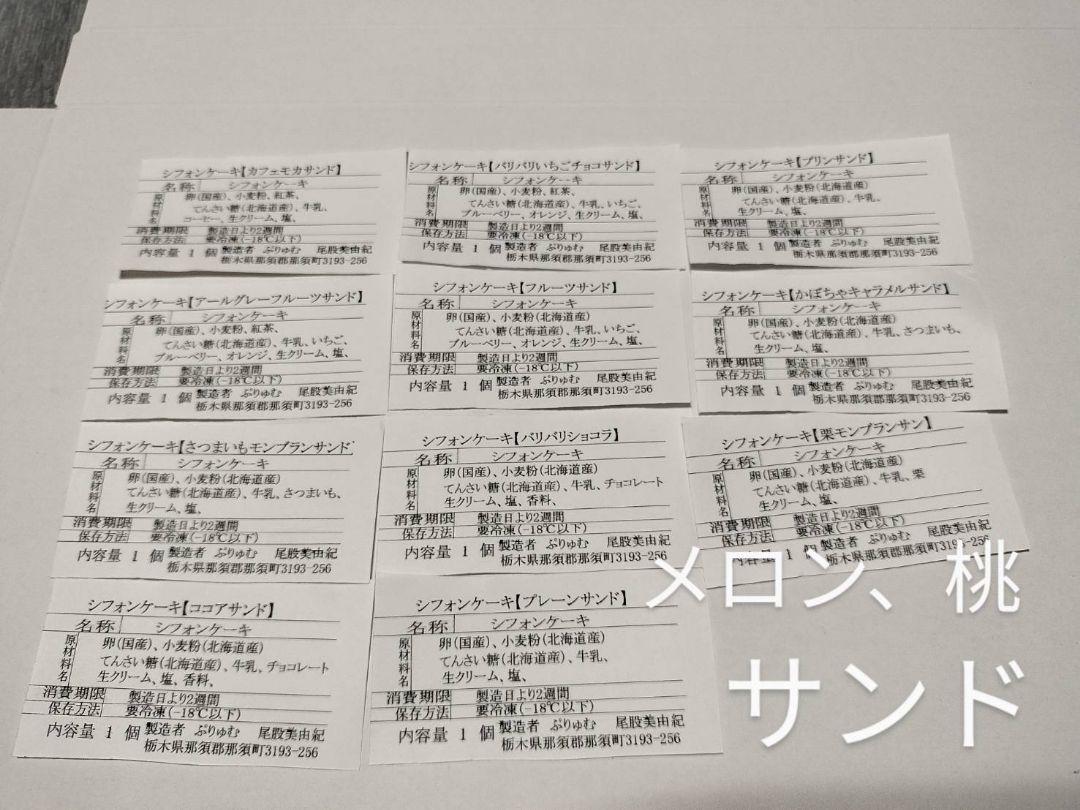 シフォンケーキ【カフェモカサンド】
名称 シフォンケーキ
原材料名 卵(国産)、小麦粉、紅茶、
てんさい糖(北海道産)、牛乳、
コーヒー、生クリーム、塩、
消費期限 製造日より2週間
保存方法 要冷凍(-18℃以下)
内容量 1 個 製造者 ぷりゅむ 尾股美由紀
栃木県那須郡那須町3193-256
シフォンケーキ【パリパリいちごチョコサンド】
名称 シフォンケーキ
原材料名 卵(国産)、小麦粉、紅茶、
てんさい糖(北海道産)、牛乳、いちご、
ブルーベリー、オレンジ、生クリーム、塩、
消費期限 製造日より2週間
保存方法 要冷凍(-18℃以下)
内容量 1 個 製造者 ぷりゅむ 尾股美由紀
栃木県那須郡那須町3193-256
シフォンケーキ【プリンサンド】
名称 シフォンケーキ
原材料名 卵(国産)、小麦粉(北海道産)
てんさい糖(北海道産)、牛乳、
生クリーム、塩、
消費期限 製造日より2週間
保存方法 要冷凍(-18℃以下)
内容量 1 個 製造者 ぷりゅむ 尾股美由紀
栃木県那須郡那須町3193-256
シフォンケーキ【アールグレーフルーツサンド】
名称 シフォンケーキ
原材料名 卵(国産)、小麦粉、紅茶、
てんさい糖(北海道産)、牛乳、いちご、
ブルーベリー、オレンジ、生クリーム、塩、
消費期限 製造日より2週間
保存方法 要冷凍(-18℃以下)
内容量 1 個 製造者 ぷりゅむ 尾股美由紀
栃木県那須郡那須町3193-256
シフォンケーキ【フルーツサンド】
名称 シフォンケーキ
原材料名 卵(国産)、小麦粉(北海道産)
てんさい糖(北海道産)、牛乳、いちご、
ブルーベリー、オレンジ、生クリーム、塩、
消費期限 製造日より2週間
保存方法 要冷凍(-18℃以下)
内容量 1 個 製造者 ぷりゅむ 尾股美由紀
栃木県那須郡那須町3193-256
シフォンケーキ【かぼちゃキャラメルサンド】
名称 シフォンケーキ
原材料名 卵(国産)、小麦粉(北海道産)
てんさい糖(北海道産)、牛乳、さつまいも、
生クリーム、塩、
消費期限 製造日より2週間
保存方法 要冷凍(-18℃以下)
内容量 1 個 製造者 ぷりゅむ 尾股美由紀
栃木県那須郡那須町3193-256
シフォンケーキ【さつまいもモンブランサンド】
名称 シフォンケーキ
原材料名 卵(国産)、小麦粉(北海道産)
てんさい糖(北海道産)、牛乳、さつまいも、
生クリーム、塩、
消費期限 製造日より2週間
保存方法 要冷凍(-18℃以下)
内容量 1 個 製造者 ぷりゅむ 尾股美由紀
栃木県那須郡那須町3193-256
シフォンケーキ【パリパリショコラ】
名称 シフォンケーキ
原材料名 卵(国産)、小麦粉(北海道産)
てんさい糖(北海道産)、牛乳、チョコレート
生クリーム、塩、香料、
消費期限 製造日より2週間
保存方法 要冷凍(-18℃以下)
内容量 1 個 製造者 ぷりゅむ 尾股美由紀
栃木県那須郡那須町3193-256
シフォンケーキ【栗モンブランサン】
名称 シフォンケーキ
原材料名 卵(国産)、小麦粉(北海道産)
てんさい糖(北海道産)、牛乳、栗
生クリーム、塩、
消費期限 製造日より2週間
保存方法 要冷凍(-18℃以下)
内容量 1 個 製造者 ぷりゅむ 尾股美由紀
栃木県那須郡那須町3193-256
シフォンケーキ【ココアサンド】
名称 シフォンケーキ
原材料名 卵(国産)、小麦粉(北海道産)
てんさい糖(北海道産)、牛乳、チョコレート
生クリーム、塩、香料、
消費期限 製造日より2週間
保存方法 要冷凍(-18℃以下)
内容量 1 個 製造者 ぷりゅむ 尾股美由紀
栃木県那須郡那須町3193-256
シフォンケーキ【プレーンサンド】
名称 シフォンケーキ
原材料名 卵(国産)、小麦粉(北海道産)
てんさい糖(北海道産)、牛乳、
生クリーム、塩、
消費期限 製造日より2週間
保存方法 要冷凍(-18℃以下)
内容量 1 個 製造者 ぷりゅむ 尾股美由紀
栃木県那須郡那須町3193-256
メロン、桃
サンド